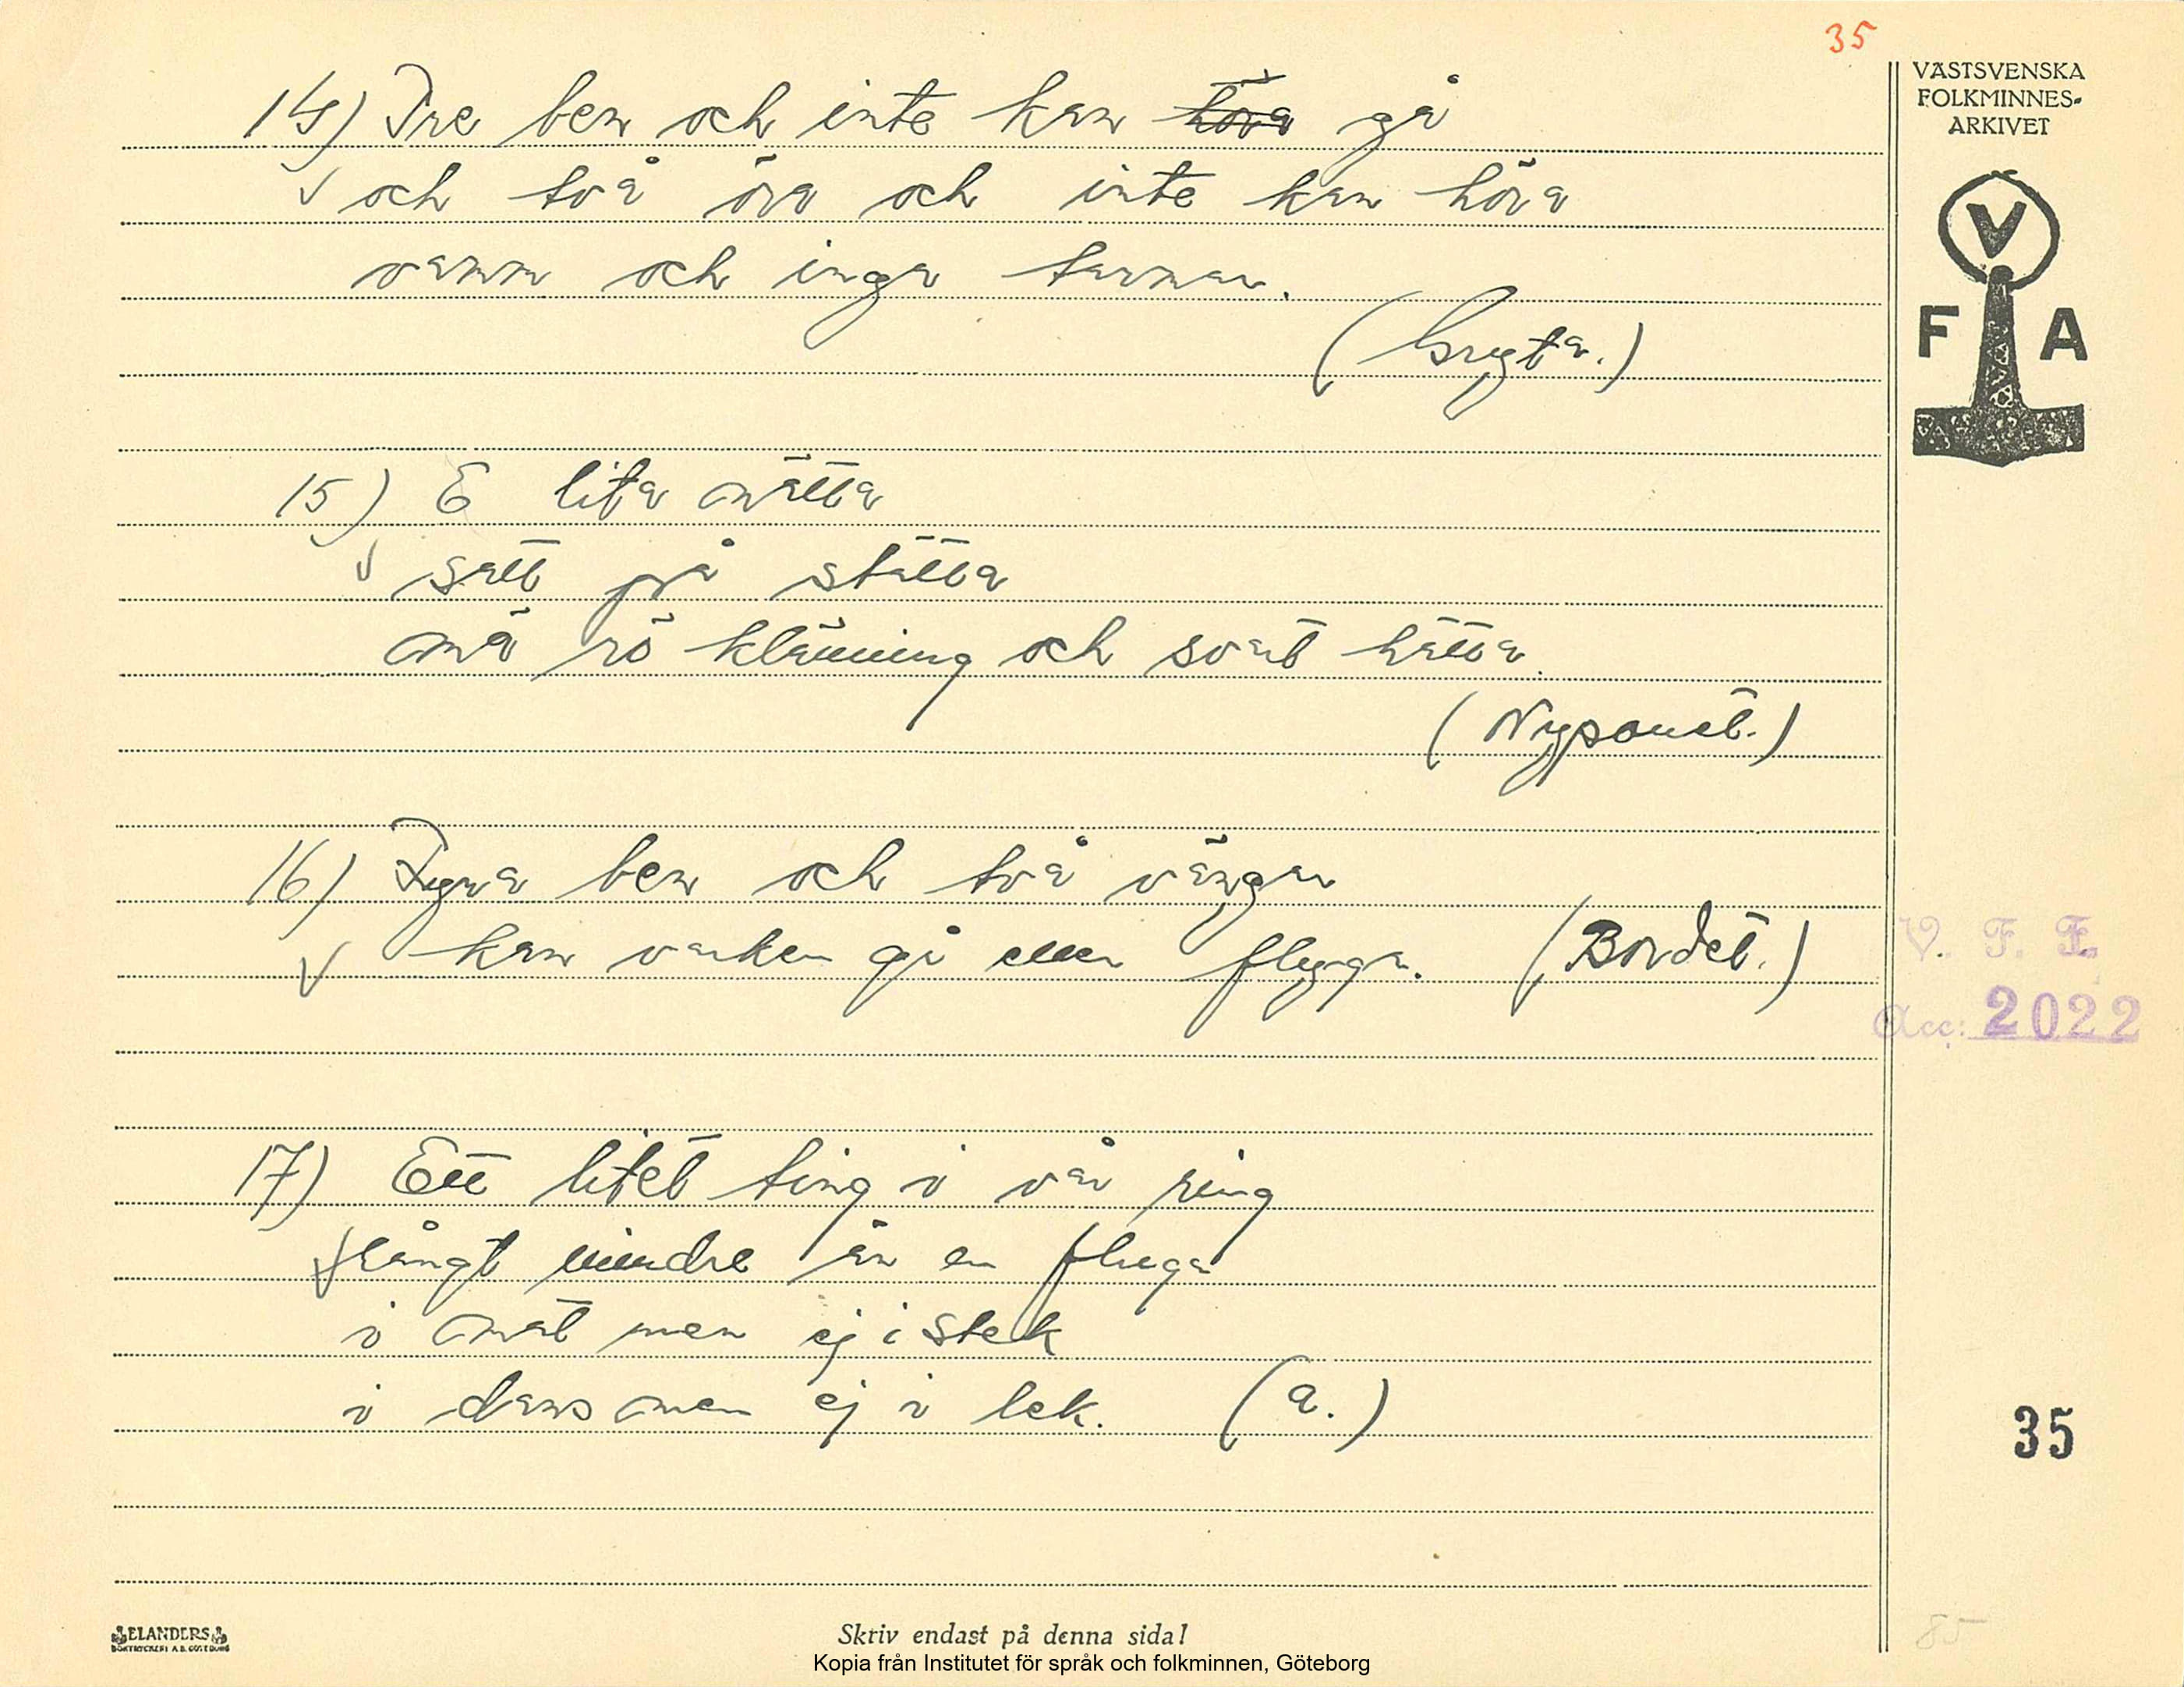 35
VÄSTSVENSKA
FOLKMINNES-
ARKIVET
V
F A
14) Tre ben och inte kan höra gå
och två öra och inte kan höra
vamm och inga tarmar.
(Gryta.)
15) E lita mätta
satt på stätta
mä rö klänning och svat hätta.
(Nyponet.)
16) Fyra ben och två vängar
kan varken gå eller flyga. (Bordet.)
V. F. F.
Acc: 2022
17) Ett litet ting i vår ring
långt mindre än en fluga
i mat men ej i stek
i dans men ej i lek. (a.)
35
ELANDERS
BOKTRYCKERI A.B. GÖTEBORG
Skriv endast på denna sida!
85
Kopia från Institutet för språk och folkminnen, Göteborg